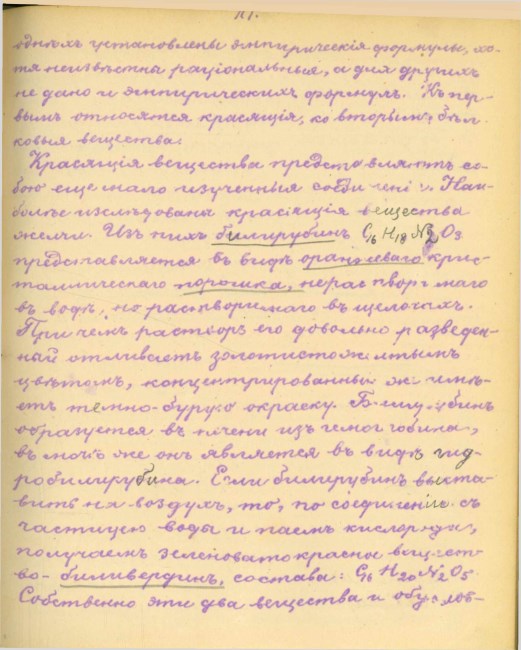 однѣхъ установлены эмпирическія формулы, хо-
тя неизвѣстны раціональныя, а для другихъ
не дано и эмпирическихъ формулъ. Къ пер-
вымъ относятся красящія, ко вторымъ бѣл-
ковыя вещества.
Красящія вещества представляютъ со-
бою еще мало изученныя соединенія. Наи-
болѣе изслѣдованы красящія вещества
желчи. Изъ нихъ билирубинъ C16 H18 N2 O3
представляется въ видѣ оранжеваго крис-
таллическаго порошка, нерастворимаго
въ водѣ, но растворимаго въ щелочахъ.
Причемъ растворъ его довольно разведен-
ный отливаетъ золотисто желтымъ
цвѣтомъ, концентрированный же имѣ-
етъ темно-бурую окраску. Билирубинъ
образуется въ печени изъ гемоглобина,
въ мочѣ же онъ является въ видѣ гид-
робилирубина. Если билирубинъ выста-
вить на воздухъ, то, по соединеніи съ
частицею воды и паемъ кислорода,
получаемъ зеленовато красное вещест-
во- биливердинъ, состава: C16 H20 N2 O5
Собственно эти два вещества и обуслов-